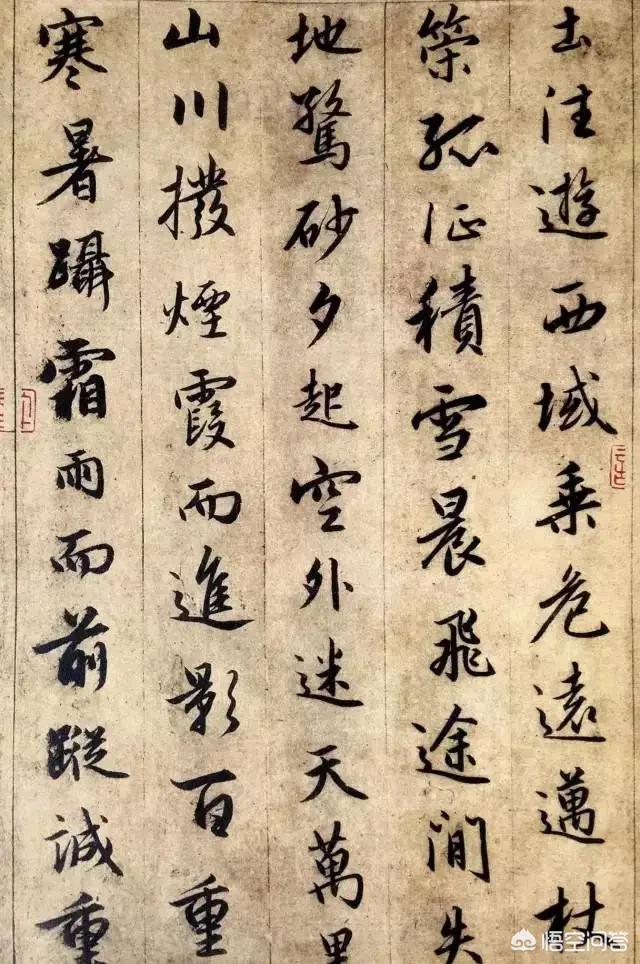 出往遊西域乘危遠邁杖
策孤征積雪晨飛途間失
地驚砂夕起空外迷天萬里
山川撥煙霞而進影百重
寒暑躡霜雨而前蹤誠重
悟空问答